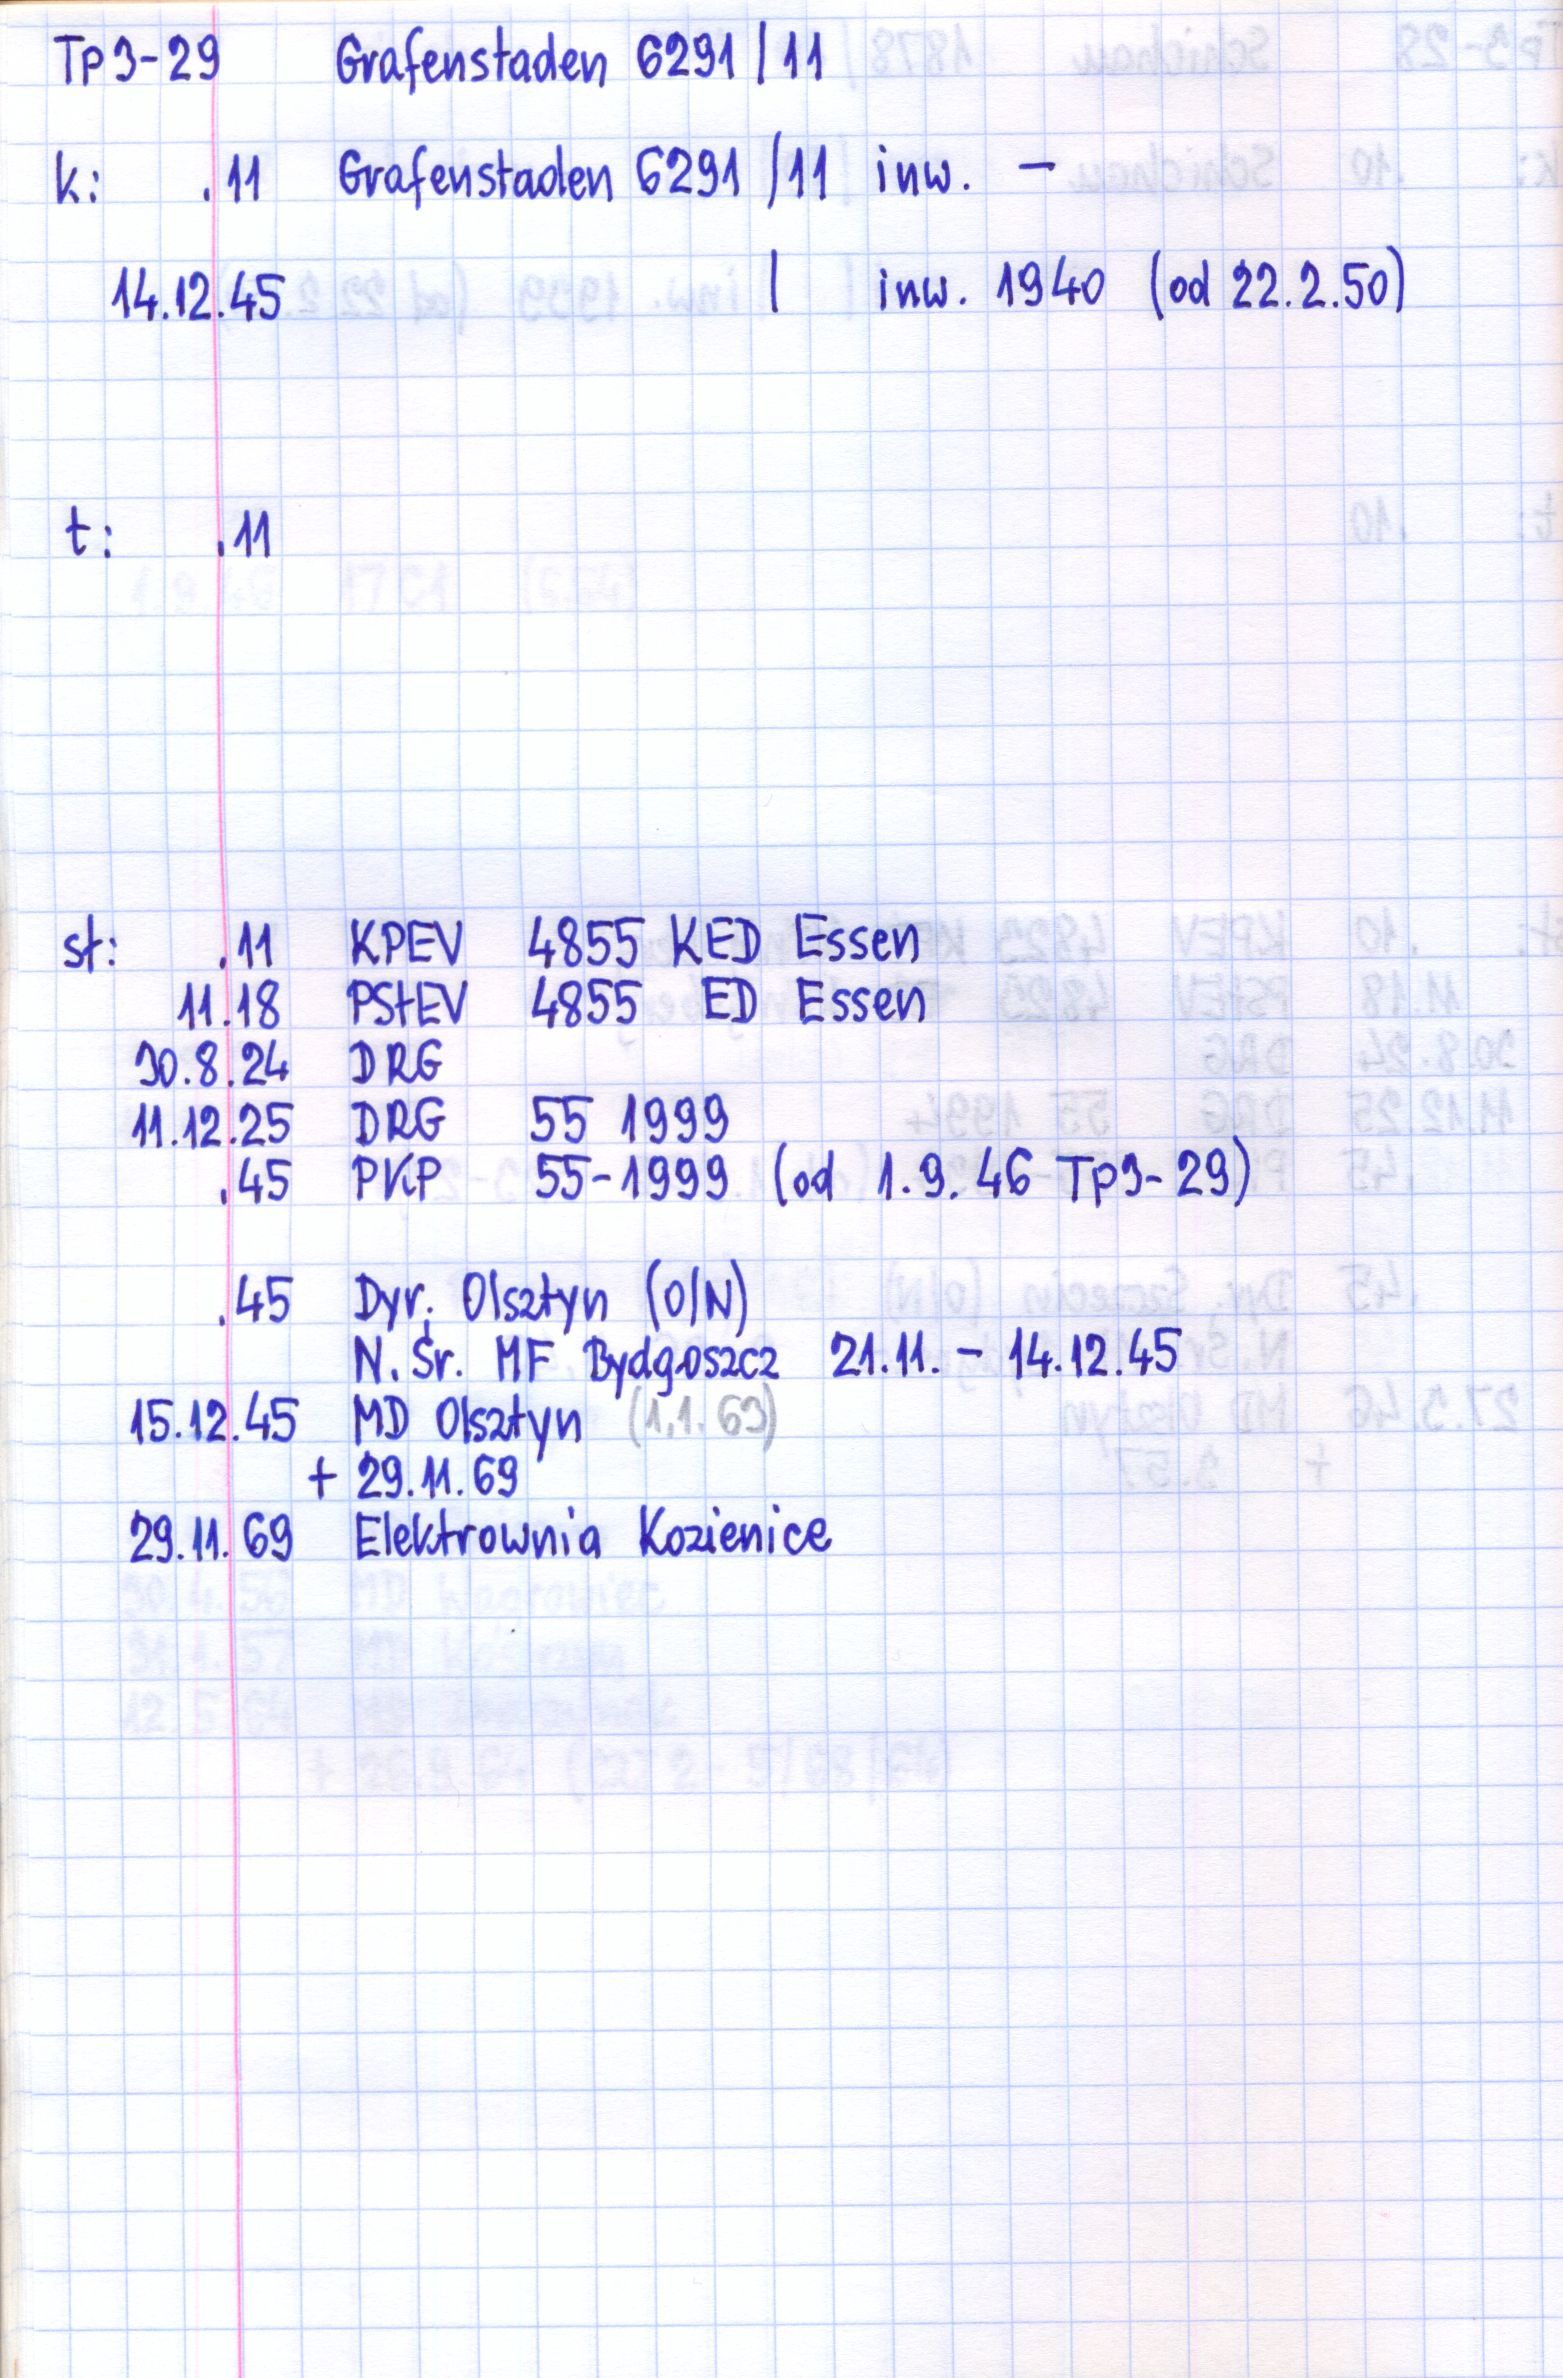 Tp3-29 Grafenstaden 6291/11
k: .11 Grafenstaden 6291/11 inw. -
14.12.45 / inw. 1940 (od 22.2.50)
t: .11
st: .11 KPEV 4855 KED Essen
11.18 PStEV 4855 ED Essen
30.8.24 DRG
11.12.25 DRG 55 1999
.45 PKP 55-1999 (od 1.9.46 Tp3-29)
.45 Dyr. Olsztyn (O/N)
N.Śr. MF Bydgoszcz 21.11. - 14.12.45
15.12.45 MD Olsztyn (1.1.63)
+ 29.11.69
29.11.69 Elektrownia Kozienice